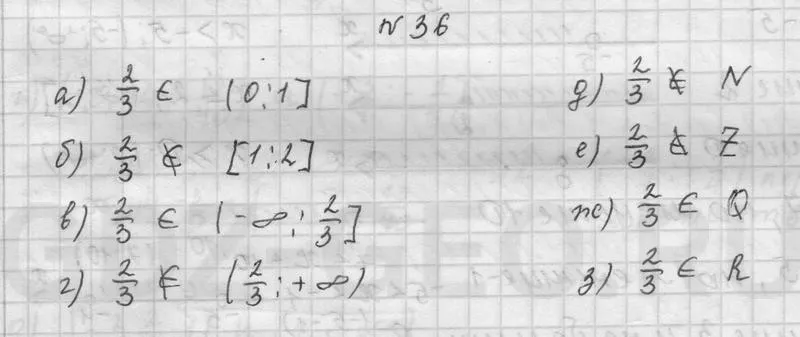 N 36
а) 2/3 ∈ (0;1]
б) 2/3 ∉ [1;2]
в) 2/3 ∈ (-∞; 2/3]
г) 2/3 ∉ (2/3; +∞)
д) 2/3 ∉ N
е) 2/3 ∉ Z
ж) 2/3 ∈ Q
з) 2/3 ∈ R